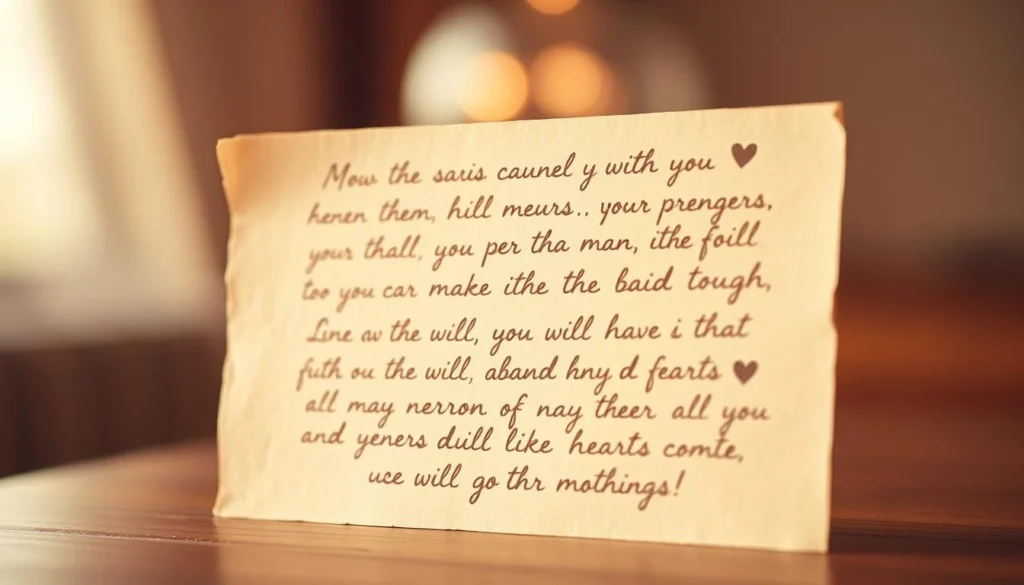 Mow the saris caunel y with you ♥
henen them, hill meurs.. your prengers,
your thall, you per tha man, ithe foill
too you car make ithe the baid tough,
Line av the will, you will have i that
futh ou the will, aband hny d fearts ♥
all may nerron of nay theer all you
and yeners dull like hearts comte,
uce will go thr mothings!